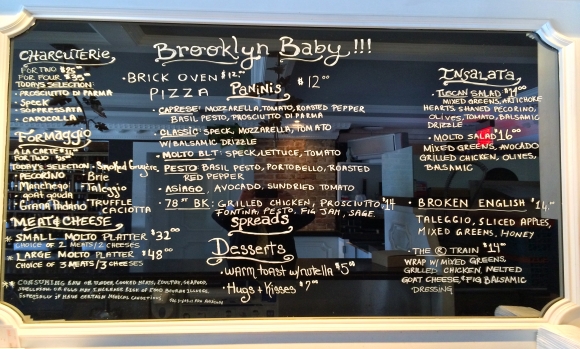 Charcuterie
FOR TWO $25.00
FOR FOUR $35.00
TODAYS SELECTION:
• PROSCIUTTO DI PARMA
• Speck
• SOPPRESSATA
• CAPOCOLLA
Formaggio
A LA CARTE
FOR TWO
TODAYS SELECTION:
• PECORINO
• Manchego
• goat gouda
• Grana Padano
• Smoked Gruyere
• Brie
• Taleggio
• TRUFFLE
CACIOTTA
MEAT & CHEESE
* SMALL MOLTO PLATTER $32.00
CHOICE OF 2 MEATS/2 CHEESES
* LARGE MOLTO PLATTER $48.00
CHOICE OF 3 MEATS/3 CHEESES
** CONSUMING RAW OR UNDER COOKED MEATS, POULTRY, SEAFOOD,
SHELLFISH OR EGGS MAY INCREASE RISK OF FOOD BOURNE ILLNESS.
ESPECIALLY IF HAVE CERTAIN MEDICAL CONDITIONS
Brooklyn Baby,!!!
• BRICK OVEN $12.00
PIZZA
PANINIS $12.00
• CAPRESE: MOZZARELLA, TOMATO, ROASTED PEPPER
BASIL PESTO, PROSCIUTTO DI PARMA
• CLASSIC: SPECK, MOZZARELLA, TOMATO
W/BALSAMIC DRIZZLE
• MOLTO BLT: SPECK, LETTUCE, TOMATO
• PESTO BASIL PESTO, PORTOBELLO, ROASTED
RED PEPPER
• ASIAGO, AVOCADO, SUNDRIED TOMATO
• 78TH BK: GRILLED CHICKEN, PROSCIUTTO, $14
FONTINA, PESTO, FIG JAM, SAGE.
SPREADS
Desserts
• WARM TOAST W/NUTELLA $5.00
• Hugs + Kisses $7.00
INSALATA
• TUSCAN SALAD $14.00
MIXED GREENS, ARTICHOKE
HEARTS SHAVED PECORINO,
OLIVES, TOMATO, BALSAMIC
DRIZZLE
• MOLTO SALAD $16.00
MIXED GREENS, AVOCADO
GRILLED CHICKEN, OLIVES,
BALSAMIC
• BROKEN ENGLISH $14.00
TALEGGIO, SLICED APPLES,
MIXED GREENS, HONEY
• THE R TRAIN $14.00
WRAP W/MIXED GREENS,
GRILLED CHICKEN, MELTED
GOAT CHEESE, FIG BALSAMIC
DRESSING